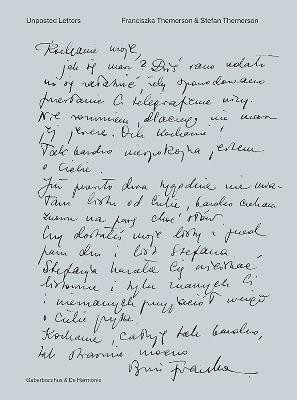 Unposted Letters
Franciszka Themerson & Stefan Themerson
Kochanie moje,
jak się masz? Dziś rano udało
mi się załatwić, żeby spowodowano
przesłanie Ci telegraficznie wizy.
Nie rozumiem, dlaczego nie masz
jej jeszcze. Och kochanie!
Tak bardzo niespokojna jestem
o Ciebie.
Już prawie dwa tygodnie nie mia-
łam listu od Ciebie, bardzo czekam
znowu na parę choć słów.
Czy dostałeś moje listy i
paru dni i list Stefana
Stefania kazała Cię uściskać,
i tylu znanych Ci
i nieznanych przyjaciół wciąż
o Ciebie pyta.
Kochanie, całuję tak bardzo,
tak strasznie mocno
Franka
Gaberbocchus & De Harmonie